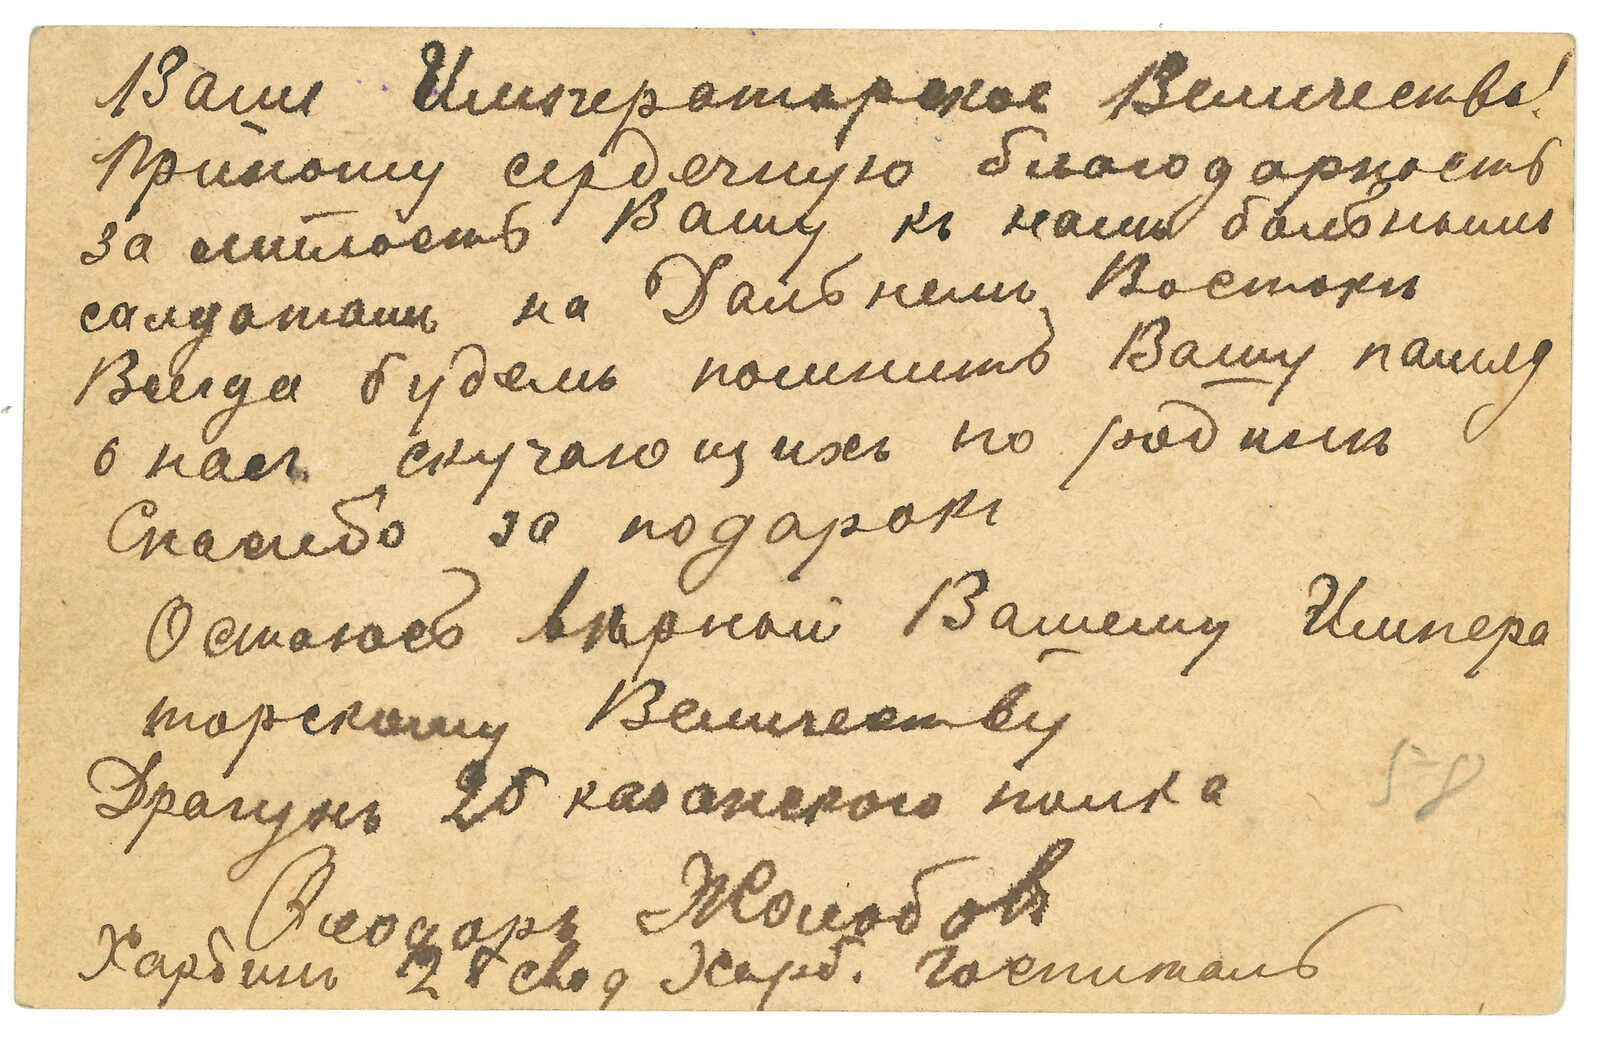 Ваше Императорское Величество!
Приношу сердечную благодарность
за милость Вашу къ намъ больнымъ
салдатамъ на Дальнемъ Востокѣ
Всегда будемъ помнить Вашу памяд
о насъ скучающихъ по родинѣ
Спасибо за подарокъ
Остаюсь вѣрной Вашему Импера
торскому Величеству
Драгунъ 25 казанского полка
Жолобовъ
Харбинъ 2й свод Харб. Госпиталь
5-8